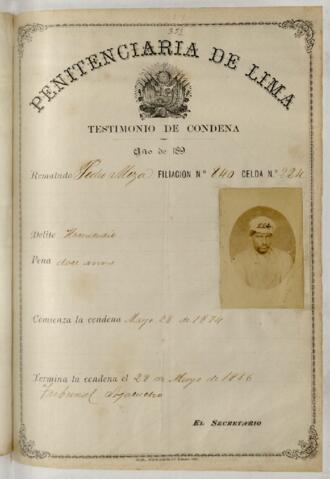 PENITENCIARIA DE LIMA
TESTIMONIO DE CONDENA
Año de 189
Rematado Pedro Meza FILIACION N.º 240 CELDA N.º 224
Delito Homicidio
Pena doce años
Comienza la condena Mayo 28 de 1874
Termina la condena el 28 de Mayo de 1886
Tribunal Ayacucho
EL SECRETARIO